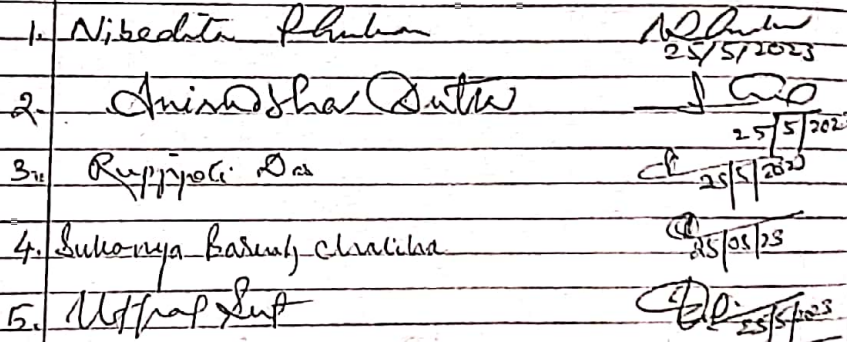 1. Nibedita Phukan
25/5/2023
2. Anirudha Dutta
25/5/202
3. Rupjyoti Das
25/5/2023
4. Sukanya Baruah Chaliha
25/05/23
5. Utpal
25/5/2023